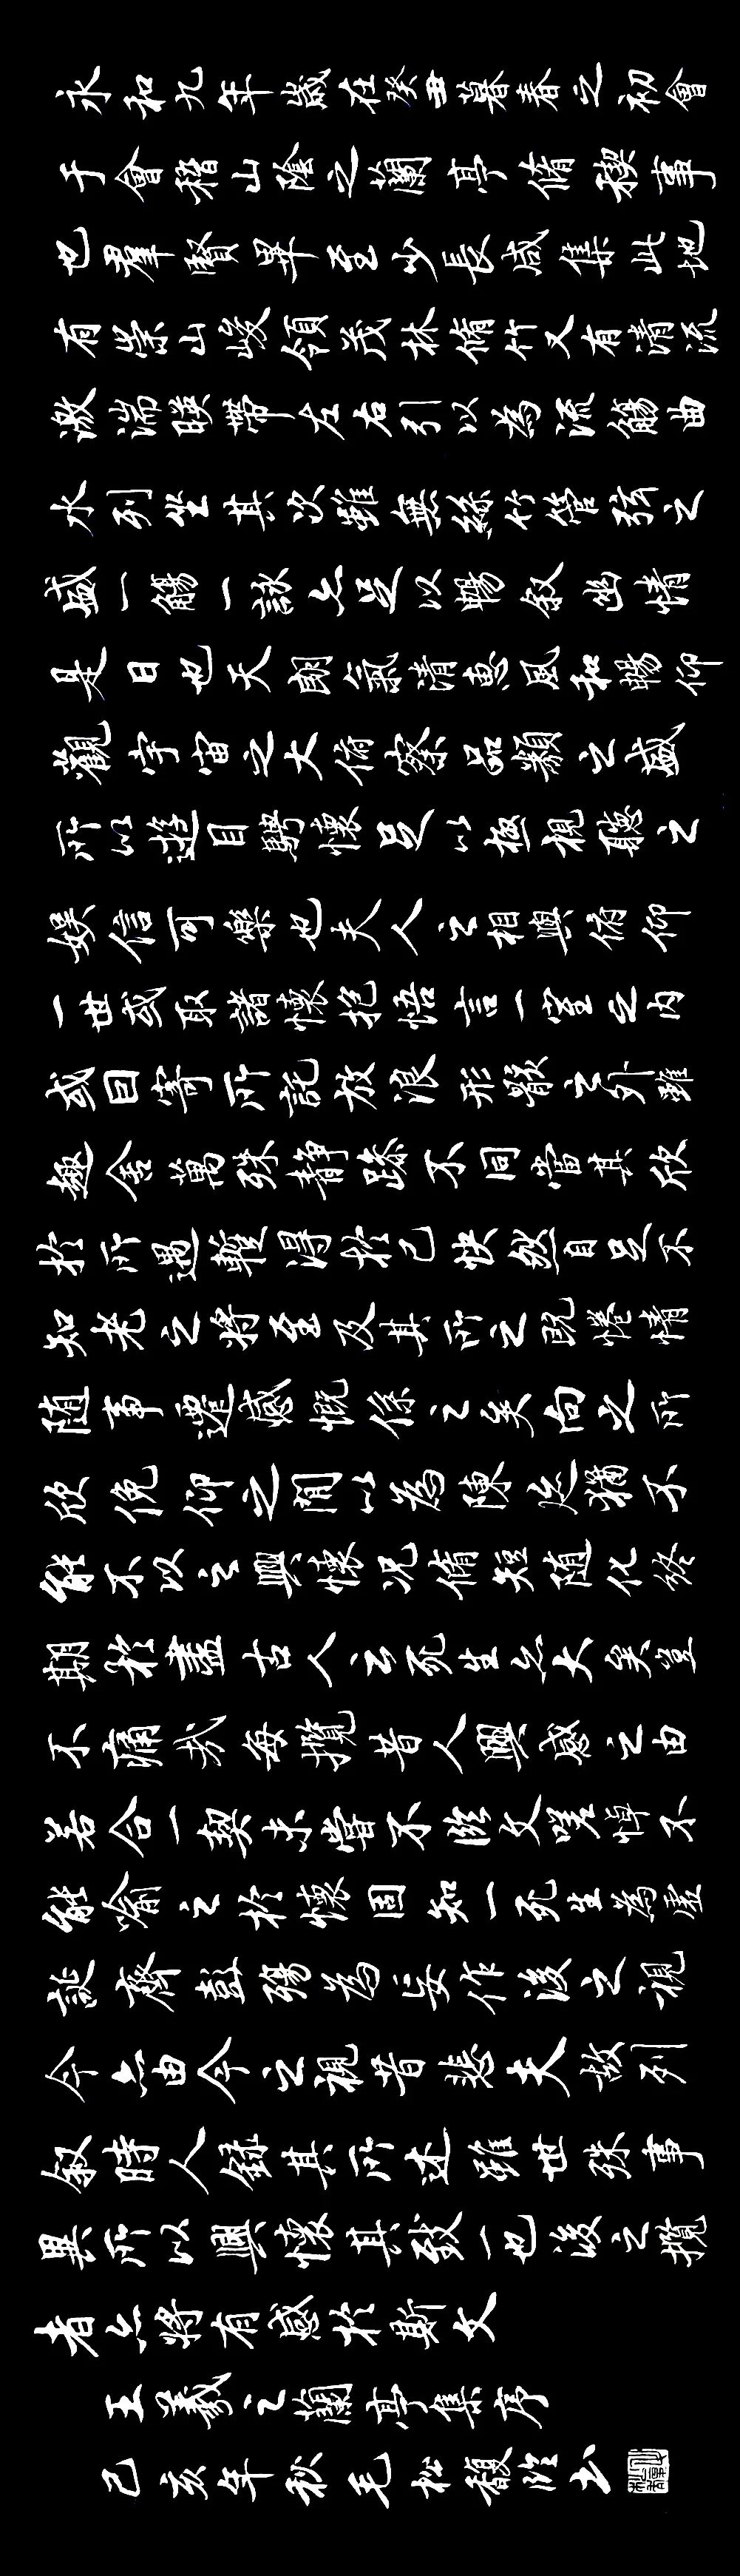 永和九年歲在癸丑暮春之初會
于會稽山陰之蘭亭脩稧事
也羣賢畢至少長咸集此地
有崇山峻領茂林脩竹又有清流
激湍暎帶左右引以為流觴曲
水列坐其次雖無絲竹管弦之
盛一觴一詠亦足以暢叙幽情
是日也天朗氣清惠風和暢仰
觀宇宙之大俯察品類之盛
所以遊目騁懷足以極視聽之
娛信可樂也夫人之相與俯仰
一世或取諸懷抱悟言一室之內
或因寄所託放浪形骸之外雖
趣舍萬殊靜躁不同當其欣
於所遇暫得於己快然自足不
知老之將至及其所之既惓情
隨事遷感慨係之矣向之所
欣俛仰之閒以為陳迹猶不
能不以之興懷況脩短隨化終
期於盡古人云死生亦大矣豈
不痛哉每攬昔人興感之由
若合一契未嘗不臨文嗟悼不
能喻之於懷固知一死生為虛
誕齊彭殤為妄作後之視
今亦由今之視昔悲夫故列
敘時人錄其所述雖世殊事
異所以興懷其致一也後之攬
者亦將有感於斯文
王羲之蘭亭集序
己亥年秋毛松馥臨書